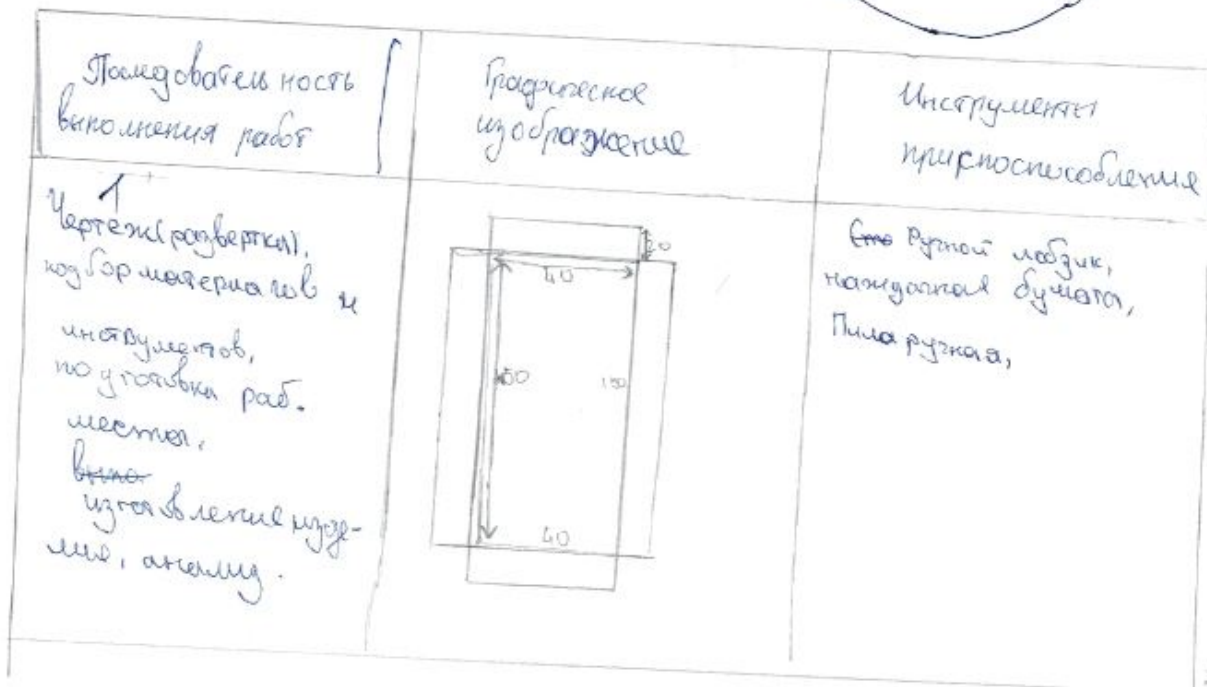 Последователь ность
выполнения работ
Графическое
изображение
Инструменты
приспособления
1
Чертеж(развертка),
подбор материалов и
инструметов,
подготовка раб.
места,
изготовление изде-
лия, анализ.
20
40
150
40
Ручной лобзик,
наждачная бумага,
Пила ручная,